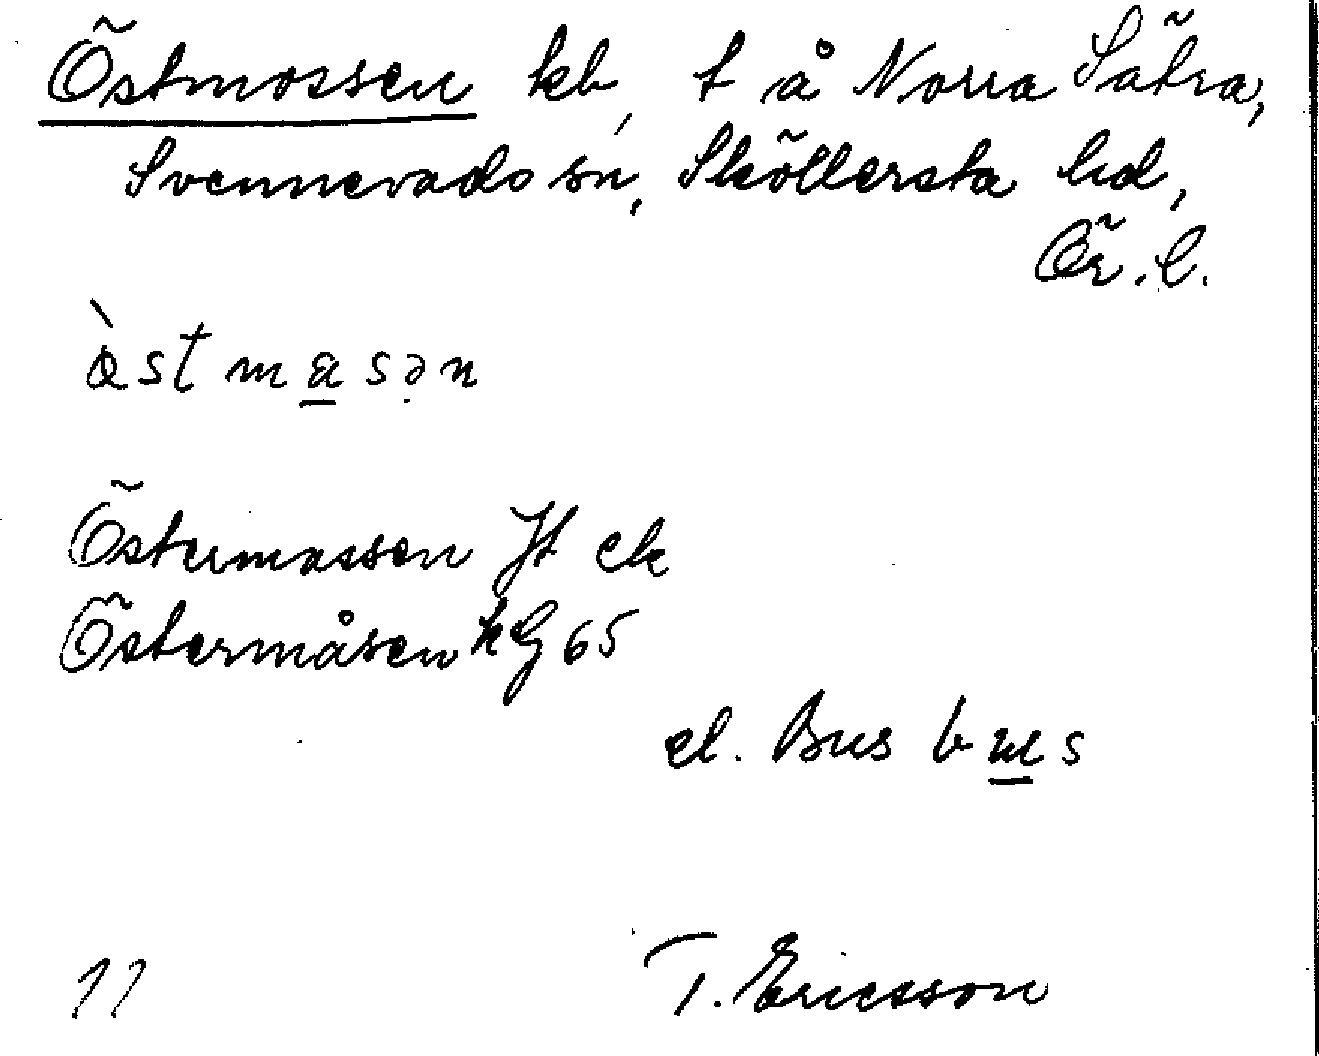 Östmossen kb, t å Norra Sätra,
Svennevads sn, Sköllersta hd,
Ör. l.
Östermossen Jt ek
Östermåsen hG 65
el. Bus
T. Ericsson